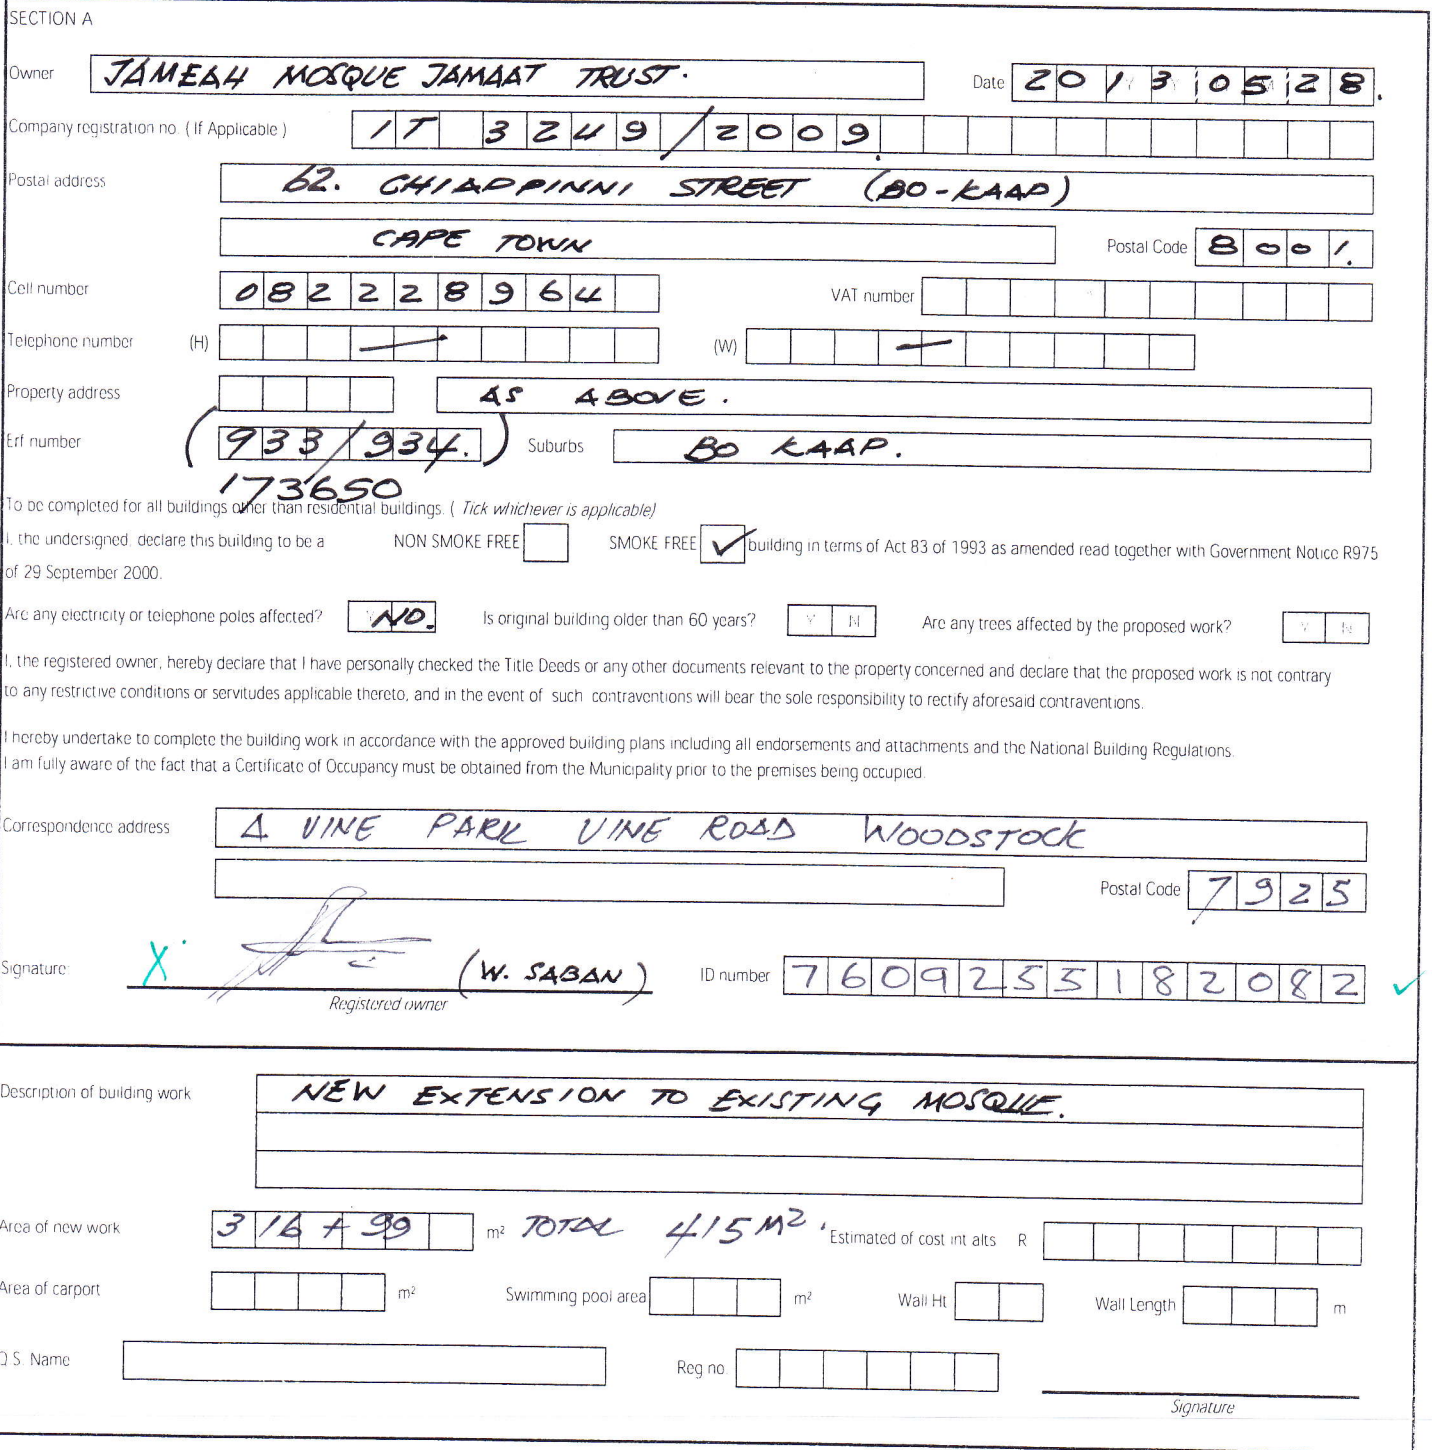 SECTION A
Owner JAMEAH MOSQUE JAMAAT TRUST. Date 2013 05 28.
Company registration no. ( If Applicable ) IT 3249/2009.
Postal address 62. CHIAPPINNI STREET (BO-KAAP)
CAPE TOWN Postal Code 8001.
Cell number 082228964 VAT number
Telephone number (H) — (W) —
Property address AS ABOVE.
Erf number (933/934.) Suburbs BO KAAP.
173650
To be completed for all buildings other than residential buildings. ( Tick whichever is applicable)
I, the undersigned, declare this building to be a NON SMOKE FREE SMOKE FREE ✓ building in terms of Act 83 of 1993 as amended read together with Government Notice R975
of 29 September 2000.
Are any electricity or telephone poles affected? NO. Is original building older than 60 years? Y N Are any trees affected by the proposed work? Y N
I, the registered owner, hereby declare that I have personally checked the Title Deeds or any other documents relevant to the property concerned and declare that the proposed work is not contrary
to any restrictive conditions or servitudes applicable thereto, and in the event of such contraventions will bear the sole responsibility to rectify aforesaid contraventions.
I hereby undertake to complete the building work in accordance with the approved building plans including all endorsements and attachments and the National Building Regulations.
I am fully aware of the fact that a Certificate of Occupancy must be obtained from the Municipality prior to the premises being occupied.
Correspondence address VINE PARK VINE ROAD WOODSTOCK
Postal Code 7925
Signature: X (W. SABAN) ID number 7609255182082 ✓
Registered owner
Description of building work NEW EXTENSION TO EXISTING MOSQUE.
Area of new work 316 + 99 m² TOTAL 415 M². Estimated of cost int alts R
Area of carport m² Swimming pool area m² Wall Ht Wall Length m
Q.S. Name Reg no
Signature